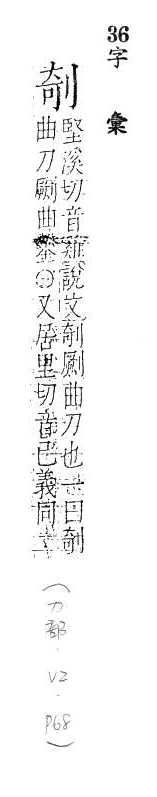 36
字彙
剞
堅溪切音雞說文剞劂曲刀也一曰剞
曲刀劂曲鑿○又居里切音己義同
(刀部.V2.P68)